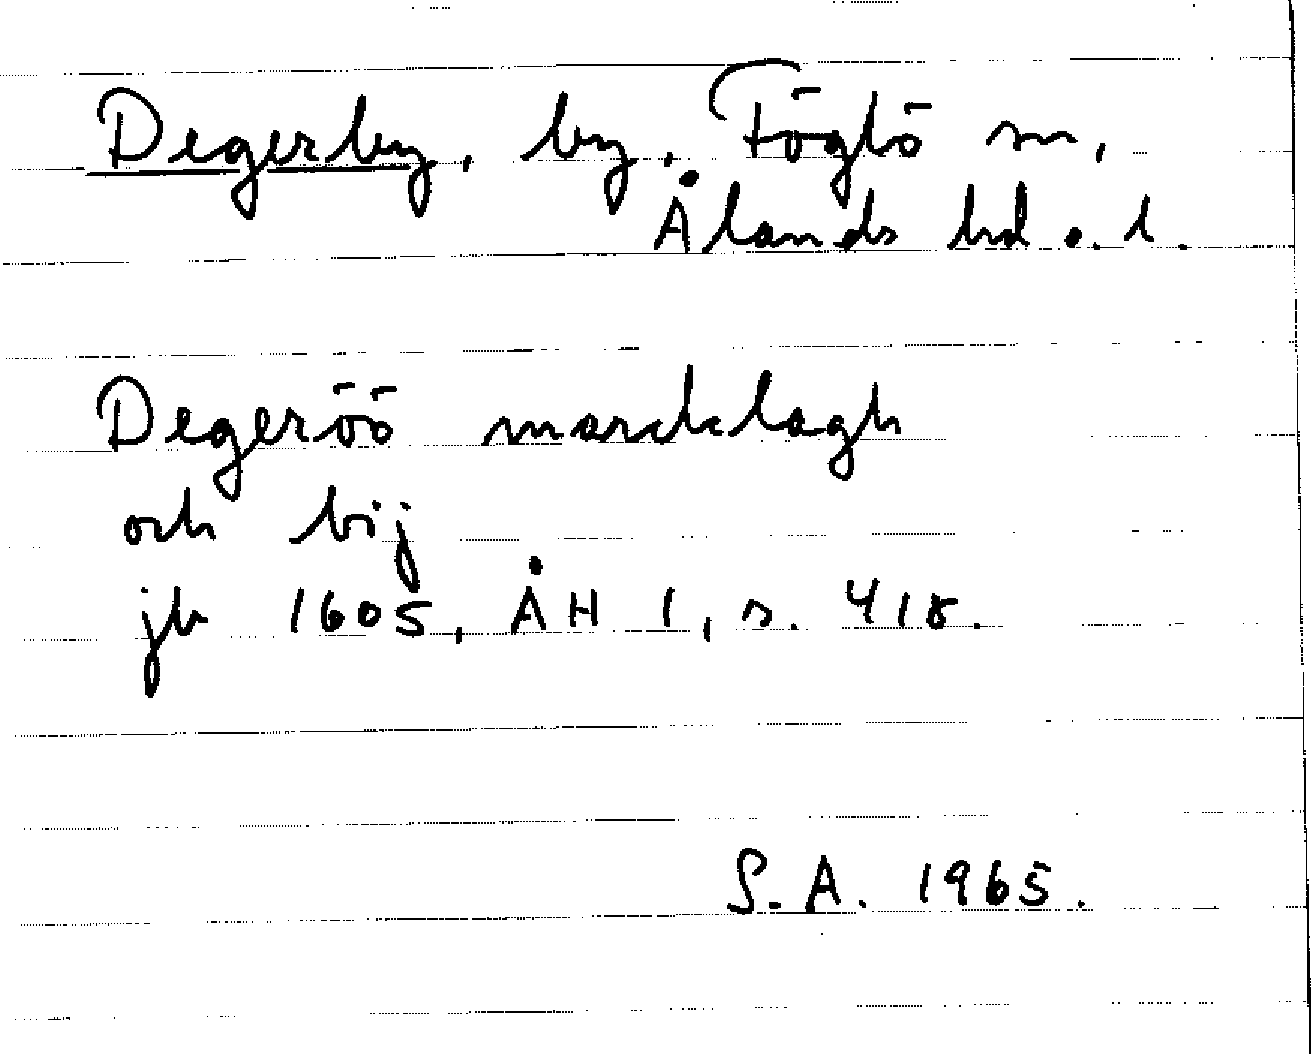 Degerby, by, Föglö sn,
Ålands hd o. l.
Degeröö marcklagh
och bij
jb 1605, ÅH 1, s. 418.
S.A. 1965.